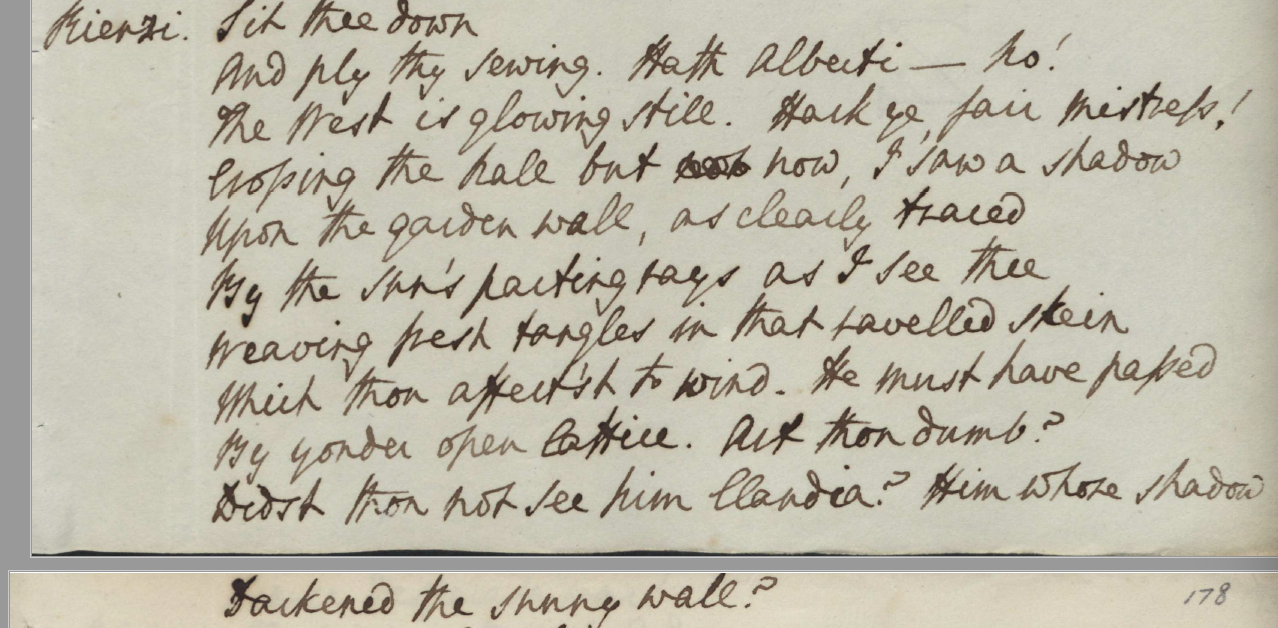 Rienzi. Sit thee down
And ply thy sewing. Hath Alberti — ho!
The West is glowing still. Hark ye, fair mistress!
Crossing the hall but now, I saw a shadow
Upon the garden wall, as clearly traced
By the sun's parting rays as I see thee
Weaving fresh tangles in that ravelled skein
Which thou affect'st to wind. He must have passed
By yonder open lattice. Art thou dumb?
Didst thou not see him Claudia? Him whose shadow
Darkened the sunny wall?
178